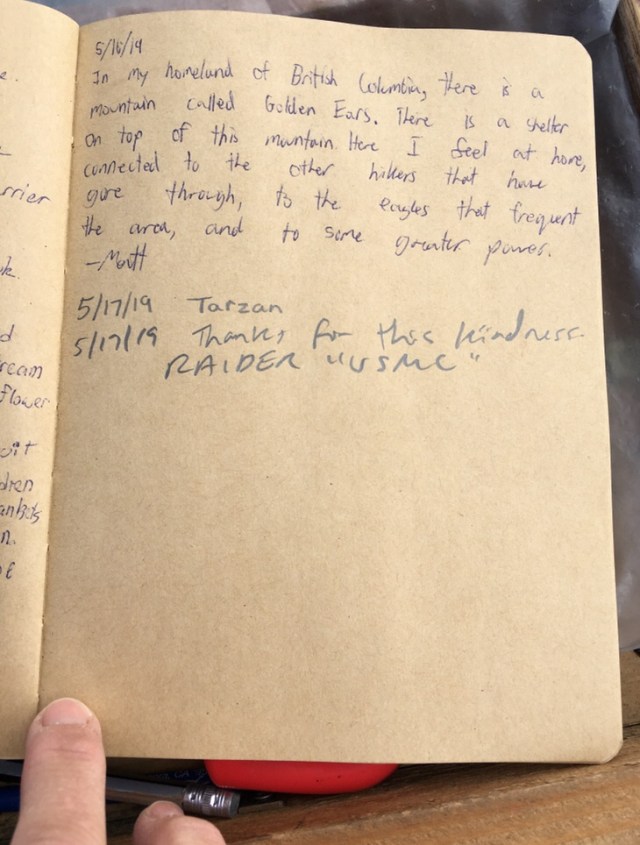 e.
rrier
k.
d
ream
flower
uit
dren
ankets
n.
5/16/19
In my homeland of British Columbia, there is a
mountain called Golden Ears. There is a shelter
on top of this mountain. Here I feel at home,
connected to the other hikers that have
gone through, to the eagles that frequent
the area, and to some greater power.
—Matt
5/17/19 Tarzan
5/17/19 Thanks for this kindness.
RAIDER "USMC"